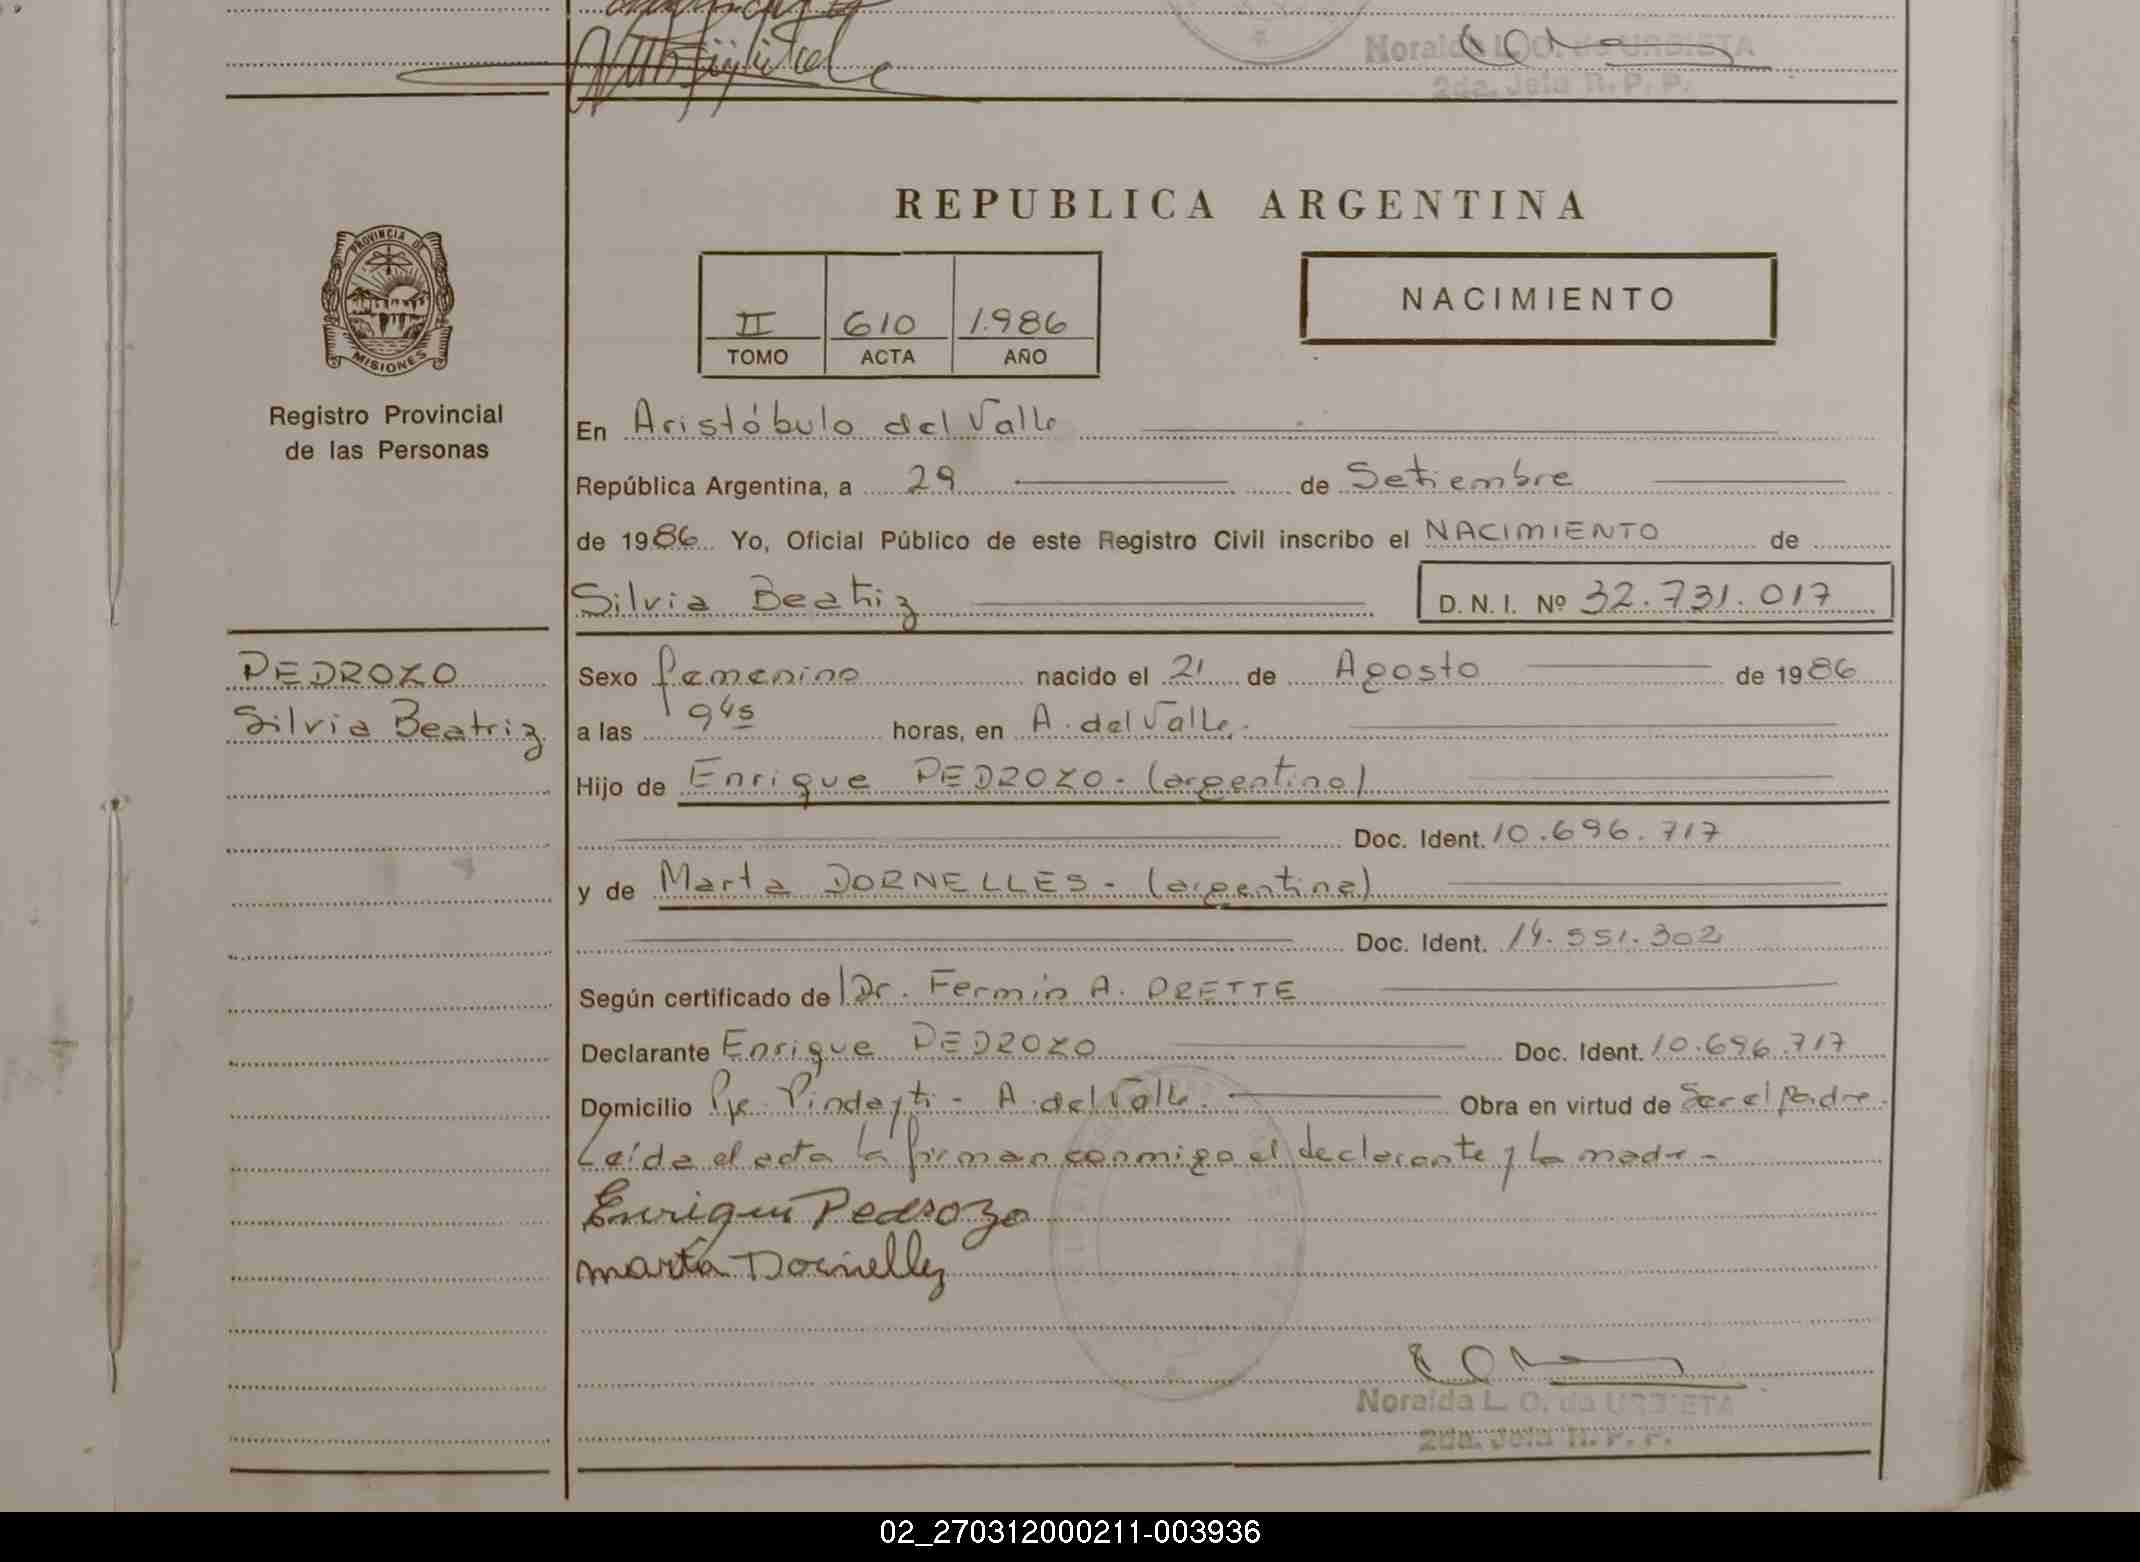 Noralda L. O. de URBIETA
2da. Jefa R. P. P.
REPUBLICA ARGENTINA
PROVINCIA DE
MISIONES
Registro Provincial
de las Personas
II 610 1.986
TOMO ACTA AÑO
NACIMIENTO
En Aristóbulo del Valle
República Argentina, a 29 de Setiembre
de 1986 Yo, Oficial Público de este Registro Civil inscribo el NACIMIENTO de
Silvia Beatriz D. N. I. Nº 32.731.017
PEDROZO
Silvia Beatriz
Sexo femenino nacido el 21 de Agosto de 1986
a las 9 45 horas, en A. del Valle.
Hijo de Enrique PEDROZO - (argentino)
Doc. Ident. 10.696.717
y de Marta DORNELLES - (argentina)
Doc. Ident. 14.551.302
Según certificado de Dr. Fermín A. PRETTE
Declarante Enrique PEDROZO Doc. Ident. 10.696.717
Domicilio Pje. Pindayti - A. del Valle. Obra en virtud de Ser el padre.
Leída el acta la firman conmigo el declarante y la madre -
Enrique Pedrozo
marta Dornelles
Noralda L. O. de URBIETA
2da. Jefa R. P. P.
02_270312000211-003936